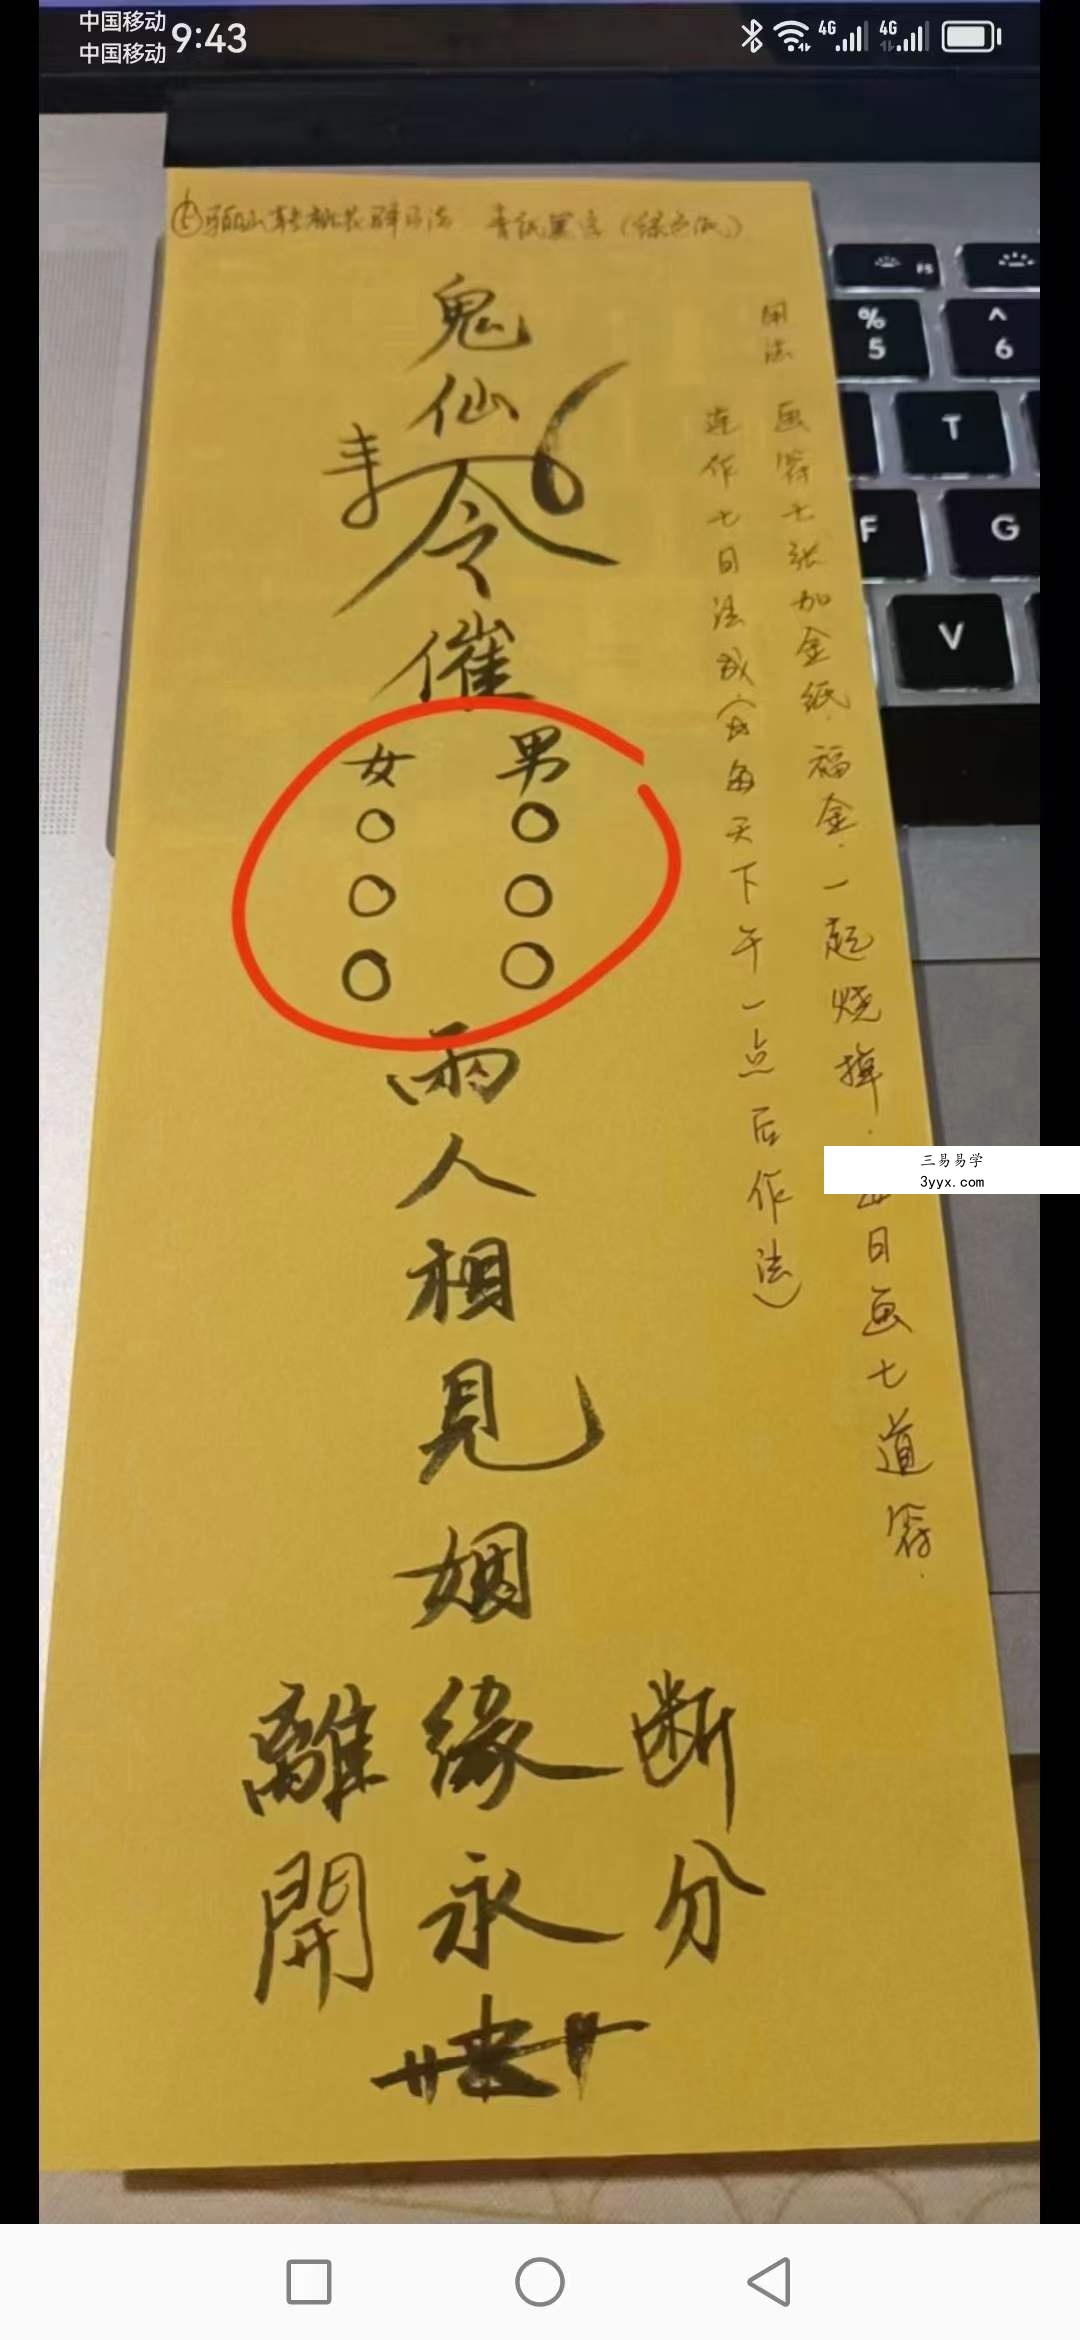 中国移动
中国移动
9:43
4G
4G
青紙黑字
鬼
仙
令
催
女 男
○ ○
○ ○
○ ○
兩
人
相
見
姻
離 緣 断
開 永 分
用法
画符七张加金纸.福金.一起烧掉.每日画七道符.
连作七日法成
每天下午一点后作法)
三易易学
3yyx.com
F5
%
5
^
6
T
F
G
V